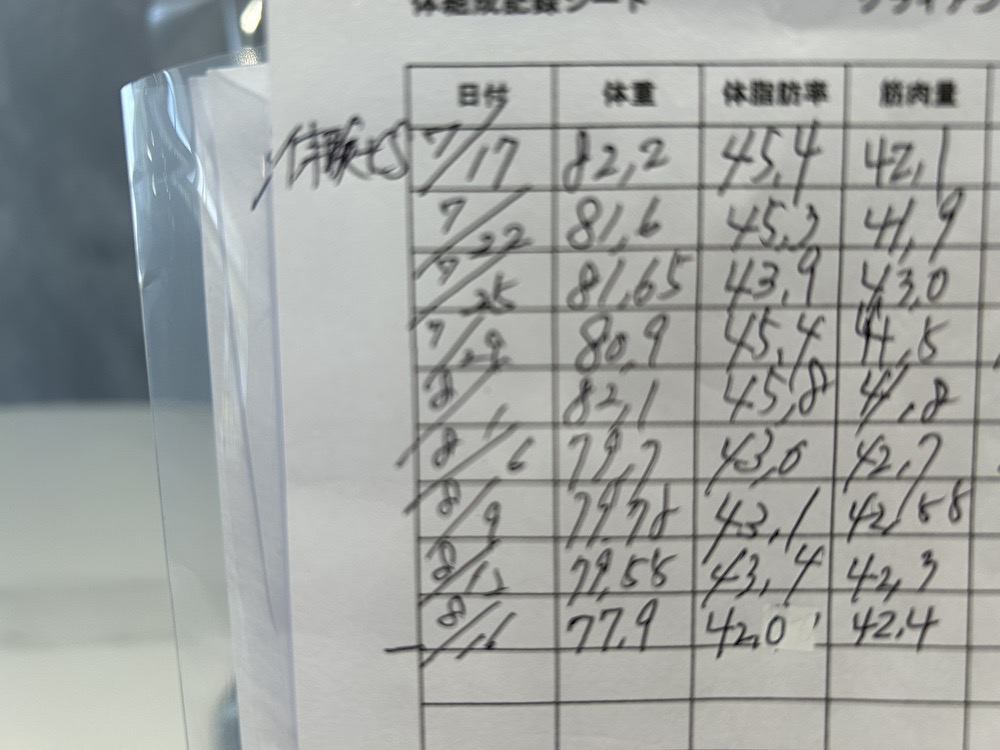 体組成記録シート クライアン
日付 体重 体脂肪率 筋肉量
体験セS 7/17 82,2 45,4 42,1
7/22 81,6 45,3 41,9
7/25 81,65 43,9 43,0
7/29 80,9 45,4 41,5
8/1 82,1 45,8 41,8
8/6 79,7 43,0 42,7
8/9 79,78 43,1 42,58
8/12 79,55 43,4 42,3
8/16 77,9 42,0 42,4